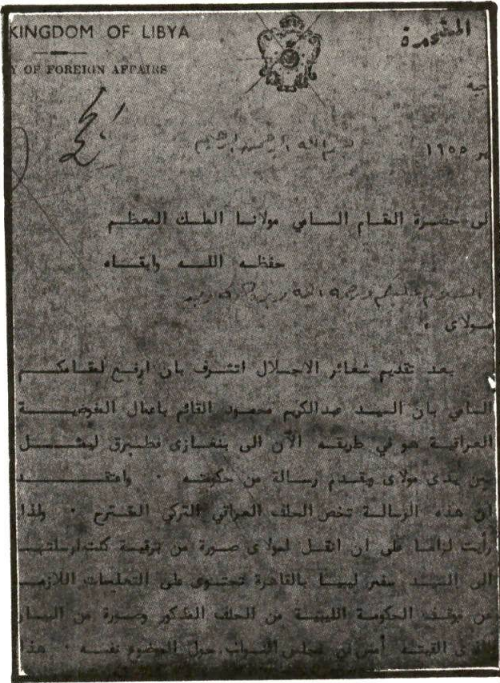 KINGDOM OF LIBYA
Y OF FOREIGN AFFAIRS
جية
١٩٥٥
بسم الله الرحمن الرحيم
لى حضرة المقام السامي مولانا الملك المعظم
حفظه الله وابقاه
السلام عليكم ورحمة الله
مولاى ،
بعد تقديم شعائر الاجلال اتشرف بان ارفع لمقامكم
السامي بان السيد عبدالكريم محمود القائم باعمال المفوضية
العراقية هو في طريقه الآن الى بنغازى فطبرق ليمثل
بين يدى مولاى ويقدم رسالة من حكومته ٠ واعتقد
ان هذه الرسالة تخص الحلف العراقي التركي المقترح ٠ ولذا
رأيت لزاما على ان انقل لمولاى صورة من برقية كنت ارسلتها
الى السيد سفير ليبيا بالقاهرة تحتوى على التعليمات اللازمة
من موقف الحكومة الليبية من الحلف المذكور وصورة من البيان
الذى القيته أمس في مجلس النواب حول الموضوع نفسه ٠ هذا